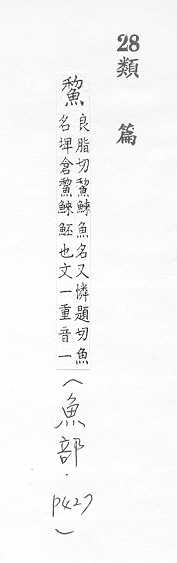 28
類篇
鯬良脂切鯬鯟魚名又憐題切魚
名埤倉鯬鯟鮏也文一重音一
(魚部.
P427)